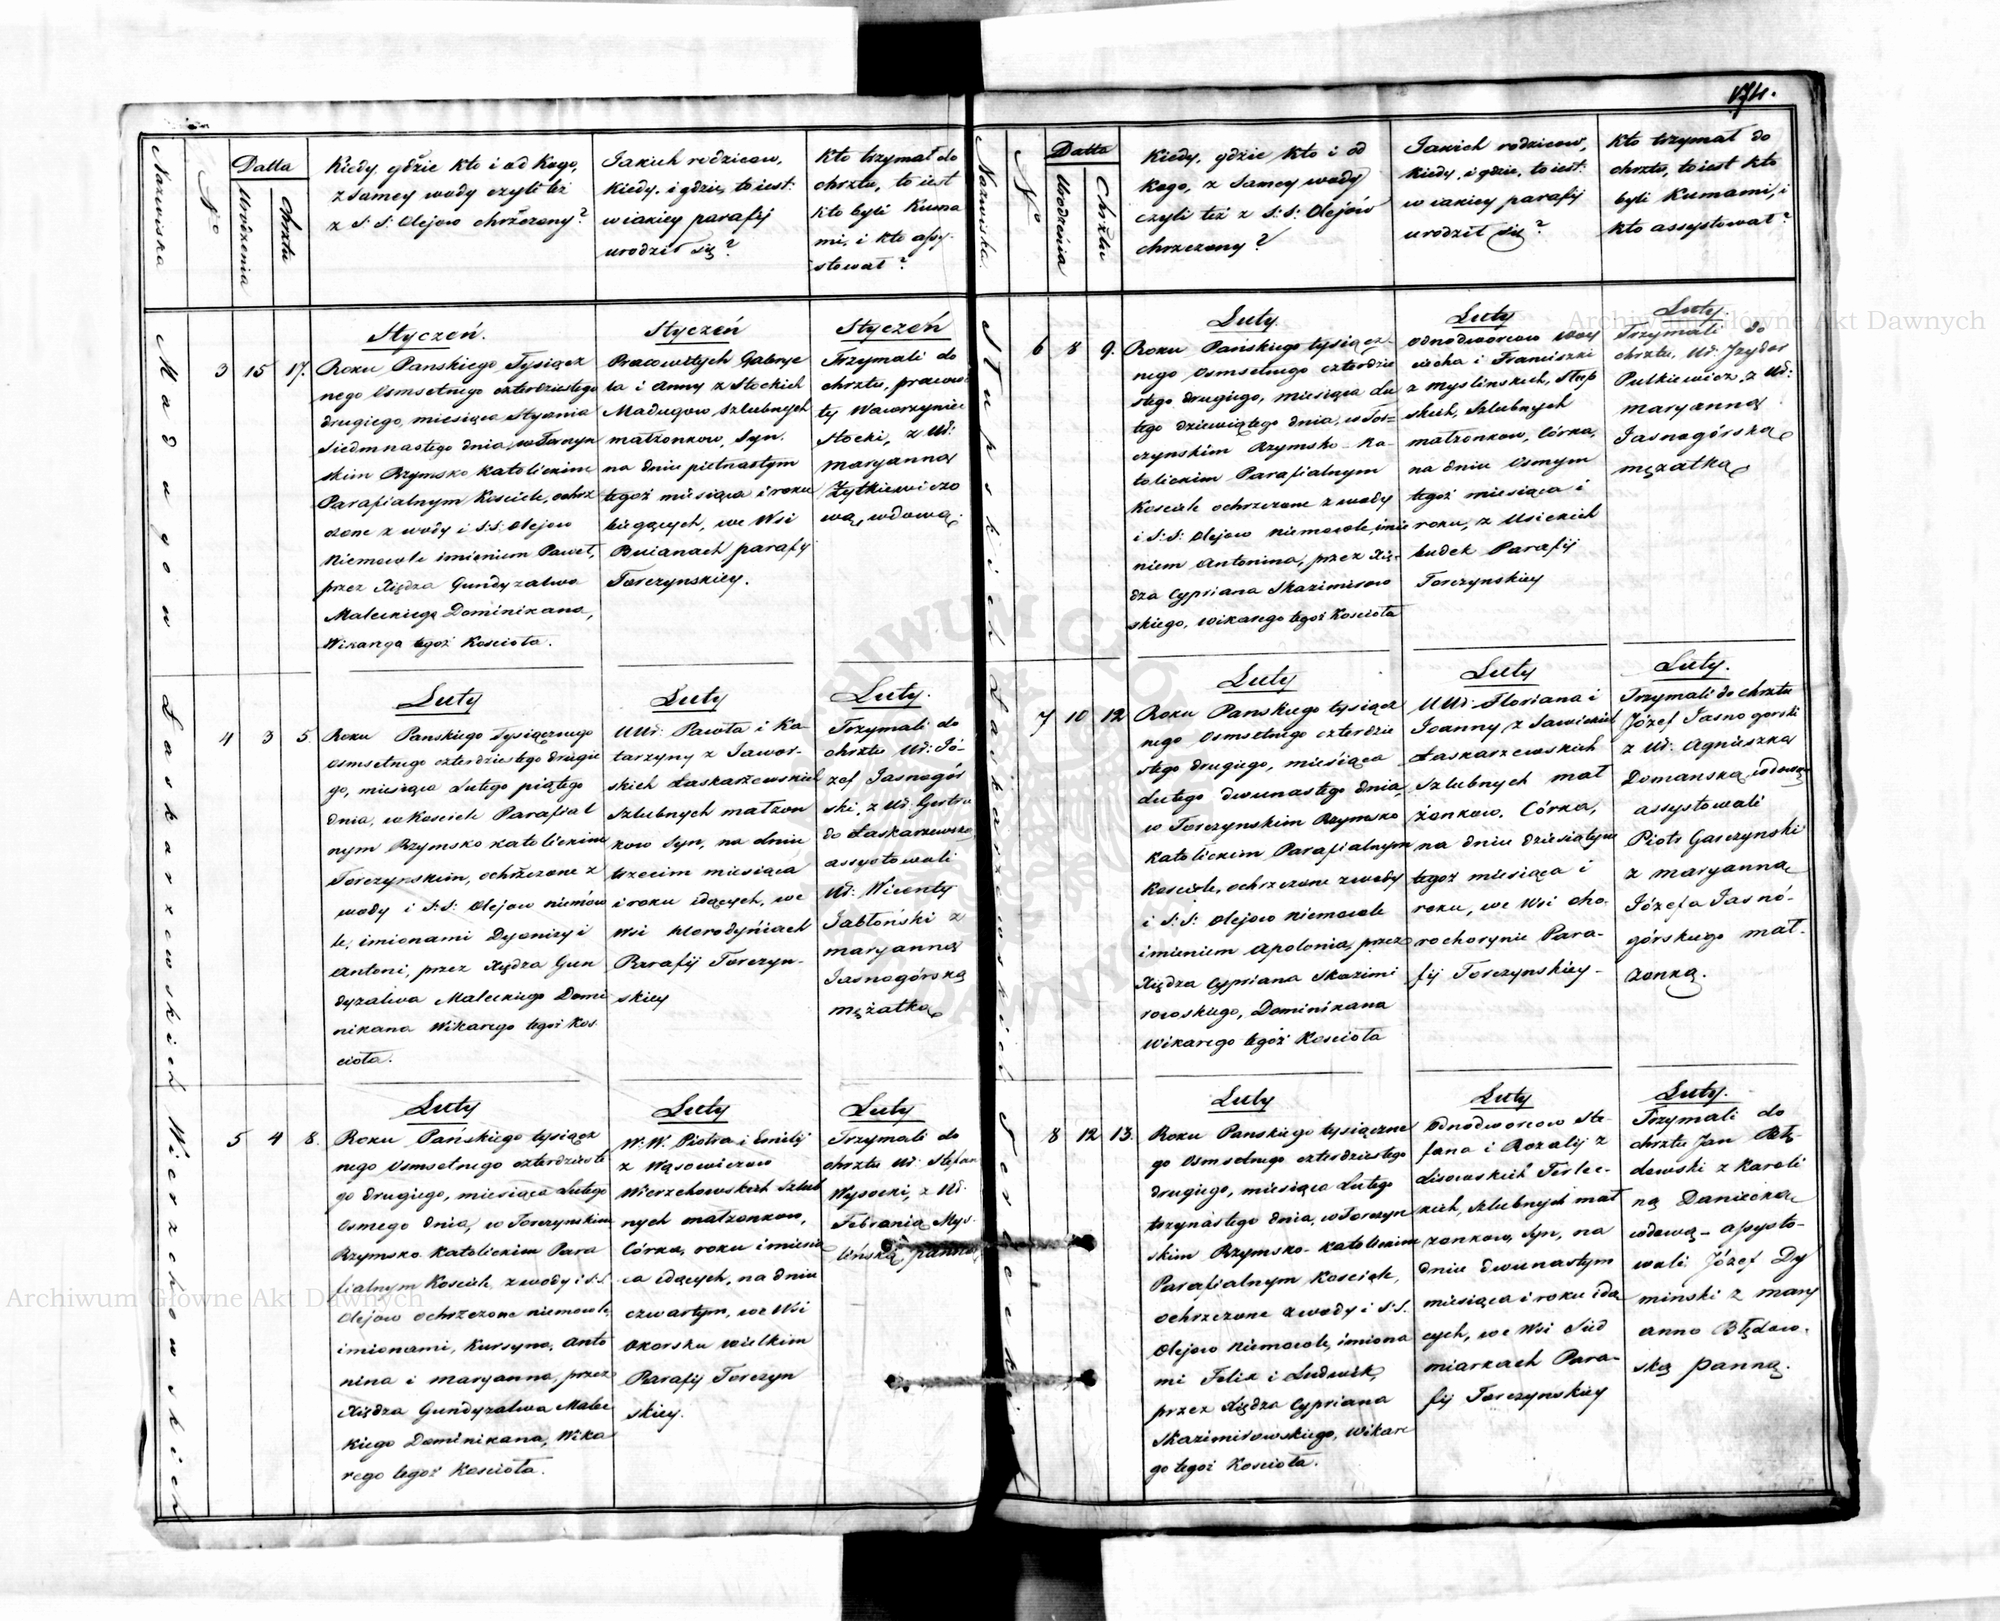 174.
Nazwiska
No
Datta
Urodzenia
Chrztu
Kiedy, gdzie kto i od kogo,
z samey wody czyli też
z S: S: Olejow chrzczony?
Jakich rodzicow,
kiedy, i gdzie, to iest:
w iakiey parafij
urodził się?
Kto trzymał do
chrztu, to iest
kto byli Kuma
mi, i kto assy-
stował?
Madugow
3 15 17.
Styczeń.
Roku Panskiego Tysiącz
nego Osmsetnego czterdziestego
drugiego, miesiąca Stycznia
Siedmnastego dnia, w Torczyn
skim Rzymsko Katolickim
Parafialnym Kosciele, ochrz
czone z wody i S:S: Olejow
Niemowle imieniem Paweł,
przez Xiędza Gundyzalwa
Maleckiego Dominikana,
Wikarego tegoż Koscioła.
Styczeń
Pracowitych Gabrye
la i Anny z Stockich
Madugow, Szlubnych
małzonkow, Syn.
na dniu pietnastym
tegoż miesiąca i roku
bieżących, we Wsi
Buianach parafij
Torczynskiey.
Styczeń
Trzymali do
chrztu, pracowi
ty Wawrzyniec
Stocki, z Ud:
Maryanną
Żytkiewiczo
wą, wdową.
Łaskarzewskich
4 3 5.
Luty
Roku Panskiego Tysiącznego
Osmsetnego czterdziestego drugie
go, miesiąca Lutego piątego
dnia, w Kosciele Parafial
nym Rzymsko Katolickim
Torczynskim, ochrzczone z
wody i S:S: Olejow niemow
le, imionami Dyonizy i
Antoni, przez Xiędza Gun
dyzalwa Maleckiego Domi
nikana Wikarego tegoż Kos
cioła.
Luty
UUr: Pawła i Ka
tarzyny z Jawor-
skich Łaskarzewskich
Szlubnych małzon
kow Syn, na dniu
trzecim miesiąca
i roku idących, we
Wsi Horodyńiach
Parafij Torczyn-
skiey
Luty.
Trzymali do
chrztu Ud: Jó-
zef Jasnogór
ski, z Ud: Gertru
dą Łaskarzewską,
assystowali
Ud: Wicenty
Jabłoński z
Maryanną
Jasnogórską
mężatką
Wierzchowskich
5 4 8.
Luty
Roku Pańskiego tysiącz
nego Osmsetnego czterdzieste
go drugiego, miesiąca Lutego
Osmego dnia, w Torczynskim
Rzymsko Katolickim Para
fialnym Kosciele, z wody i S:S:
Olejow ochrzczone niemowle,
imionami, Kursyna, Anto
nina i Maryanna, przez
Xiędza Gundyzalwa Malec
kiego Dominikana, Wika
rego tegoż Kosciola.
Luty
W:W: Piotra i Emilij
z Wąsowiczow
Wierzchowskich Szlub
nych małzonkow,
Córka, roku i miesią
ca idących, na dniu
czwartym, we Wsi
Okorsku wielkim
Parafij Torczyn
skiey.
Luty
Trzymali do
chrztu Ud: Stefan
Wysocki, z Ud:
Febranią Mys-
lińską, panną,
Nazwiska.
No
Datta
Urodzenia
Chrztu
Kiedy, gdzie kto i od
kogo, z samey wody
czyli też z S: S: Olejów
chrzczony?
Jakich rodzicow,
kiedy, i gdzie, to iest:
w iakiey parafij
urodził się?
Kto trzymał do
chrztu, to iest kto
byli Kumami, i
kto assystował?
Słupskich
6 8 9.
Luty.
Roku Pańskiego tysiącz-
nego Osmsetnego czterdzie
stego drugiego, miesiąca Lu
tego dziewiątego dnia, w Tor-
czynskim Rzymsko-Ka-
tolickim Parafialnym
Kosciele ochrzczone z wody
i S:S: Olejow niemowle, imie
niem Antonina, przez Xię-
dza Cypriana Skazimirow
skiego, wikarego tegoż Kosciola
Luty
Odnodworcow Woy
ciecha i Franciszki
z Myslinskich, Słup
skich, Szlubnych
małzonkow, Córka,
na dniu Osmym
tegoż miesiąca i
roku, z Usickich
budek Parafij
Torczynskiey
Luty.
Trzymali do
chrztu, Ud: Jzydor
Pulkiewicz, z Ud:
Maryanną
Jasnogórską
mężatką
Łaskarzewskich
7 10 12
Luty
Roku Panskiego tysiącz
nego Osmsetnego czterdzie
stego drugiego, miesiąca
Lutego dwunastego dnia,
w Torczynskim Rzymsko
Katolickim Parafialnym
Kosciele, ochrzczone z wody
i S:S: Olejow Niemowle
imieniem Apolonia, przez
Xiędza Cypriana Skazimi
rowskiego, Dominikana
Wikarego tegoż Kosciola
Luty
UUr: Floriana i
Joanny, z Sawickich
Łaskarzewskich
Szlubnych mał
żonkow, Córka,
na dniu dziesiątym
tegoż miesiąca i
roku, we Wsi Cho-
rochorynie Para-
fij Torczynskiey-
Luty.
Trzymali do chrztu
Józef Jasnogorski
z Ud: Agnieszką
Domanską, wdową
assystowali
Piotr Garczynski
z Maryanną
Józefa Jasno-
górskiego mał-
żonką.
Terleckich
8 12 13.
Luty
Roku Panskiego tysiączne
go Osmsetnego czterdziestego
drugiego, miesiąca Lutego
trzynastego dnia, w Torczyn
skim Rzymsko-Katolickim
Parafialnym Kosciele,
ochrzczone z wody i S:S.
Olejow Niemowle, imiona
mi Felix i Ludwik,
przez Xiędza Cypriana
Skazimirowskiego, Wikare
go tegoż Kosciola.
Luty
Odnodworcow Ste-
fana i Rozalij z
Lisowskich Terlec-
kich, Szlubnych mał
żonkow, Syn, na
dniu dwunastym
miesiąca i roku idą
cych, we Wsi Sied
miarkach Para-
fij Torczynskiey
Luty.
Trzymali do
chrztu Jan Błę-
dowski z Karoli
ną Daniecką
wdową- assysto-
wali Józef Dy
minski z Mary
anno Błędow-
ską panną.
Archiwum Główne Akt Dawnych
Archiwum Główne Akt Dawnych